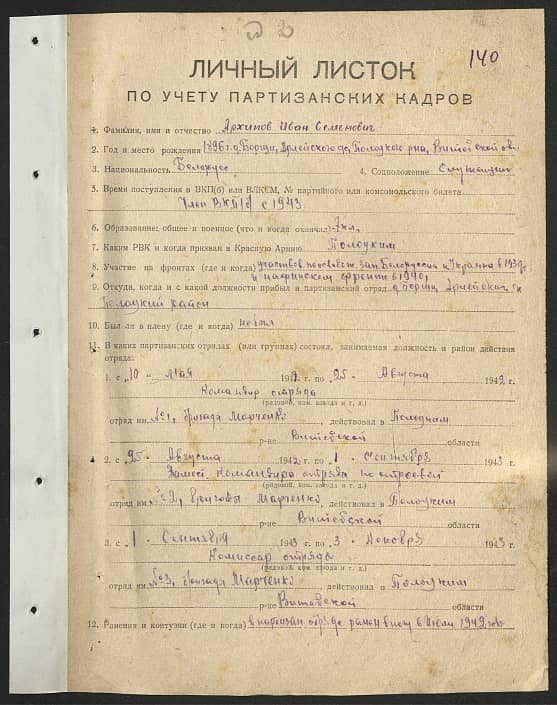 140
ЛИЧНЫЙ ЛИСТОК
ПО УЧЕТУ ПАРТИЗАНСКИХ КАДРОВ
1. Фамилия, имя и отчество Архипов Иван Семенович
2. Год и место рождения 1896 г. д. Борщи, Полоцкого р-на, Витебской
3. Национальность Белорус 4. Соцположение Служащий
5. Время поступления в ВКП(б) или ВЛКСМ, № партийного или комсомольского билета
Член ВКП/б с 1943
6. Образование: общее и военное (что и когда окончил)
7. Каким РВК и когда призван в Красную Армию Полоцким
8. Участие на фронтах (где и когда) Зап. Белоруссии и Украина в 1939 г
и на финском фронте в 1940 г
9. Откуда, когда и с какой должности прибыл в партизанский отряд д. Борщи
Полоцкий район
10. Был ли в плену (где и когда) не был
11. В каких партизанских отрядах (или группах) состоял, занимаемая должность и район действия
отряда:
1. с "10" Мая 1942 г. по "25" Августа 1942 г.
Командир отряда
(рядовой, ком. взвода и т. д.)
отряд им. №1, бригада Марченко, действовал в Полоцким
р-не Витебской области
2. с "25" Августа 1942 г. по "1" Сентября 1943 г.
Замест. Командира отряда по строевой
(рядовой, ком. взвода и т. д.)
отряд им. №2, бригады Марченко, действовал в Полоцким
р-не Витебской области
3. с "1" Сентября 1943 г. по "3" Ноября 1943 г.
Комиссар отряда
(рядовой, ком. взвода и т. д.)
отряд им. №3, бригада Марченко действовал в Полоцким
р-не Витебской области
12. Ранения и контузии (где и когда) в партизан. отряде ранен в ногу в Июле 1942 года